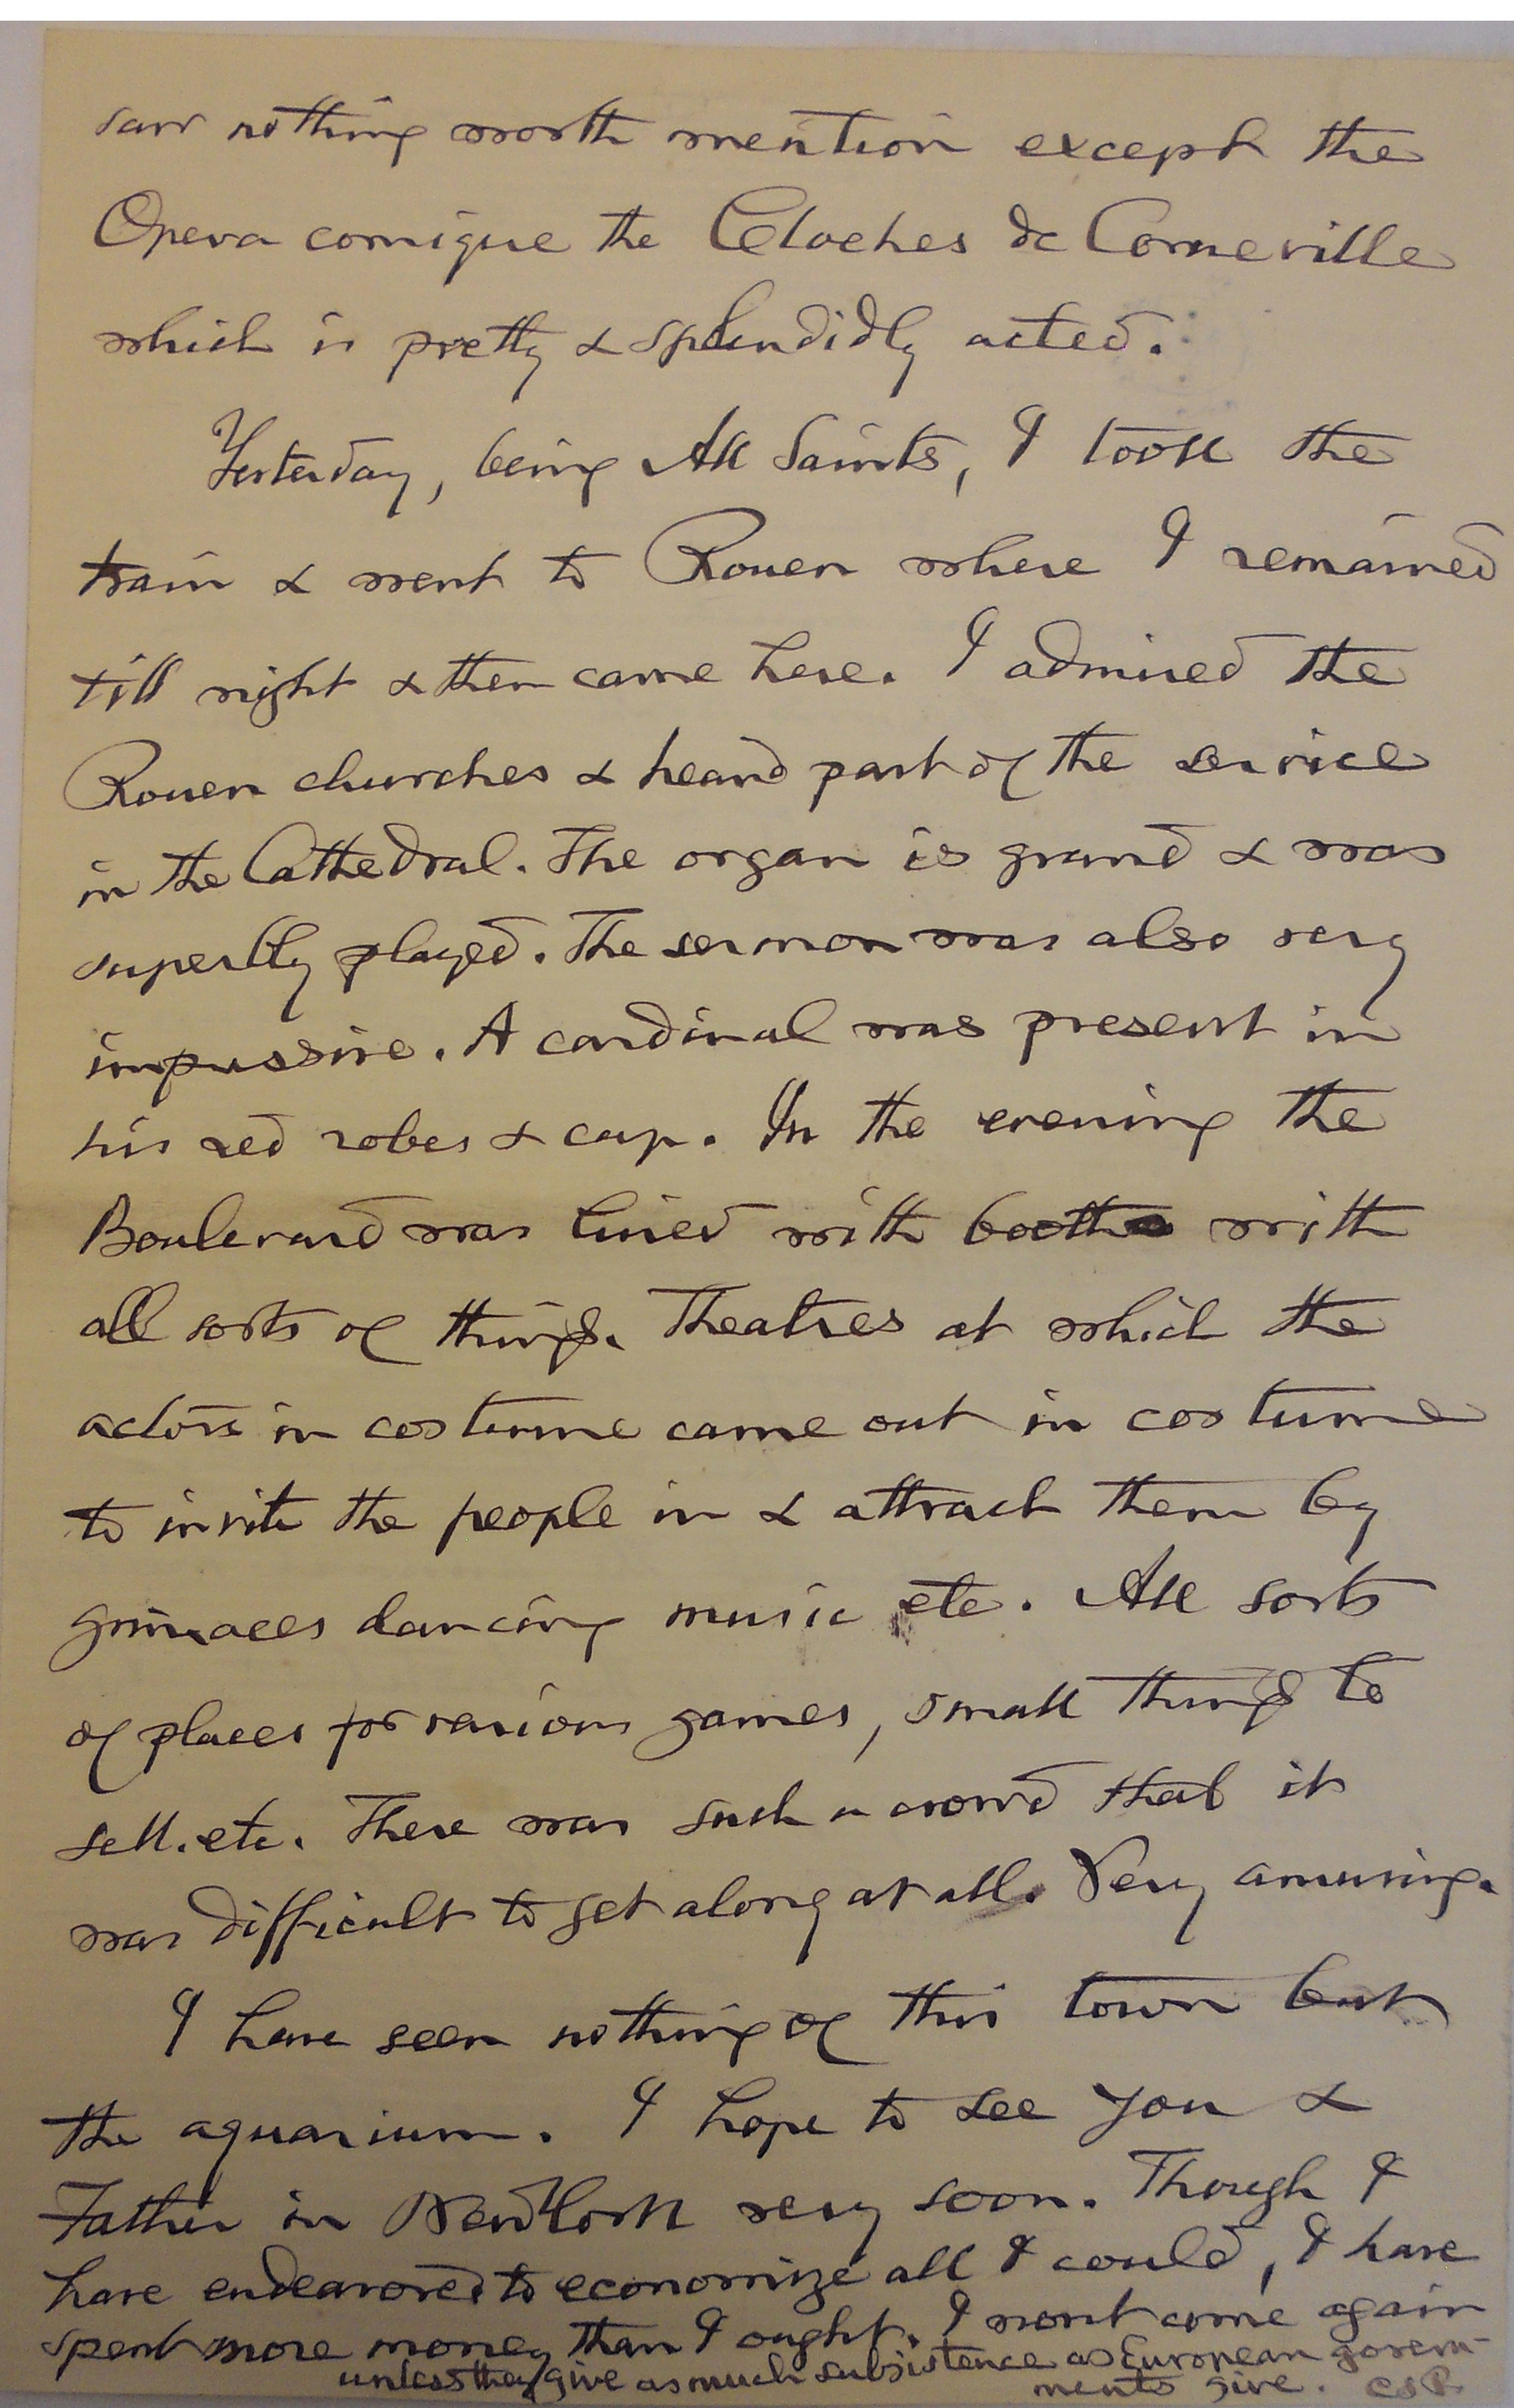 saw nothing worth mention except the
Opera comique the Cloches de Corneville
which is pretty & splendidly acted.
Yesterday, being All Saints, I took the
train & went to Rouen where I remained
till night & then came here. I admired the
Rouen churches & heard part of the service
in the Cathedral. The organ is grand & was
superbly played. The sermon was also very
impressive. A cardinal was present in
his red robes & cap. In the evening the
Boulevard was lined with booths with
all sorts of things. Theatres at which the
actors in costume came out in costume
to invite the people in & attract them by
grimaces dancing music etc. All sorts
of places for various games, small things to
sell. etc. There was such a crowd that it
was difficult to get along at all. Very amusing.
I have seen nothing of this town but
the aquarium. I hope to see you &
Father in New York very soon. Though I
have endeavored to economize all I could, I have
spent more money than I ought. I wont come again
unless they give as much subsistence as European govern-
ments give. CSP